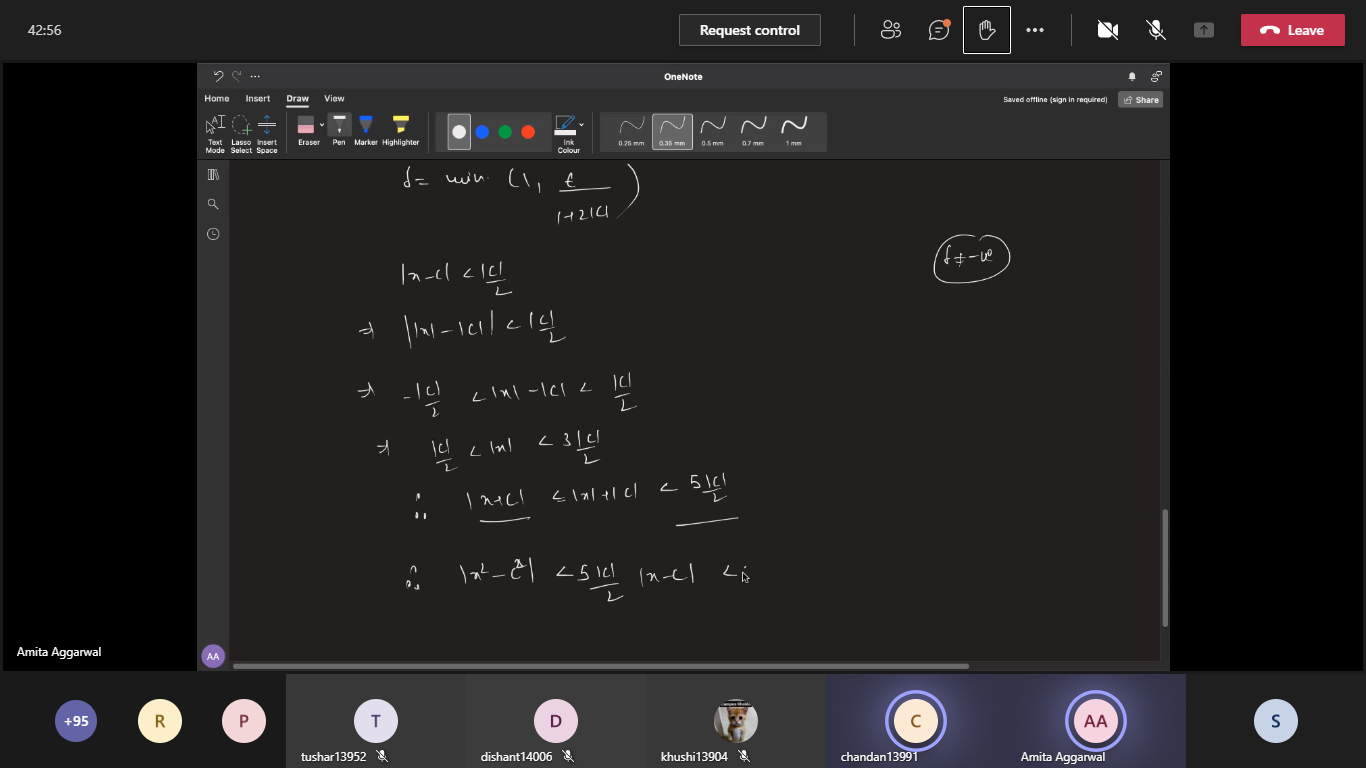 42:56
Request control
Leave
OneNote
Home Insert Draw View
Saved offline (sign in required)
Share
Text Mode
Lasso Select
Insert Space
Eraser
Pen
Marker
Highlighter
Ink Colour
0.25 mm
0.35 mm
0.5 mm
0.7 mm
1 mm
δ = min. (1, ε/(1+2|c|))
δ ≠ -ve
|x-c| < |c|/2
⇒ ||x| - |c|| < |c|/2
⇒ -|c|/2 < |x| - |c| < |c|/2
⇒ |c|/2 < |x| < 3|c|/2
∴ |x+c| ≤ |x|+|c| < 5|c|/2
∴ |x² - c²| < 5|c|/2 |x-c| <
Amita Aggarwal
AA
+95
R
P
T
tushar13952
D
dishant14006
khushi13904
C
chandan13991
AA
Amita Aggarwal
S